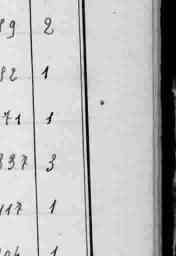 89 2
82 1
71 1
337 3
117 1
1